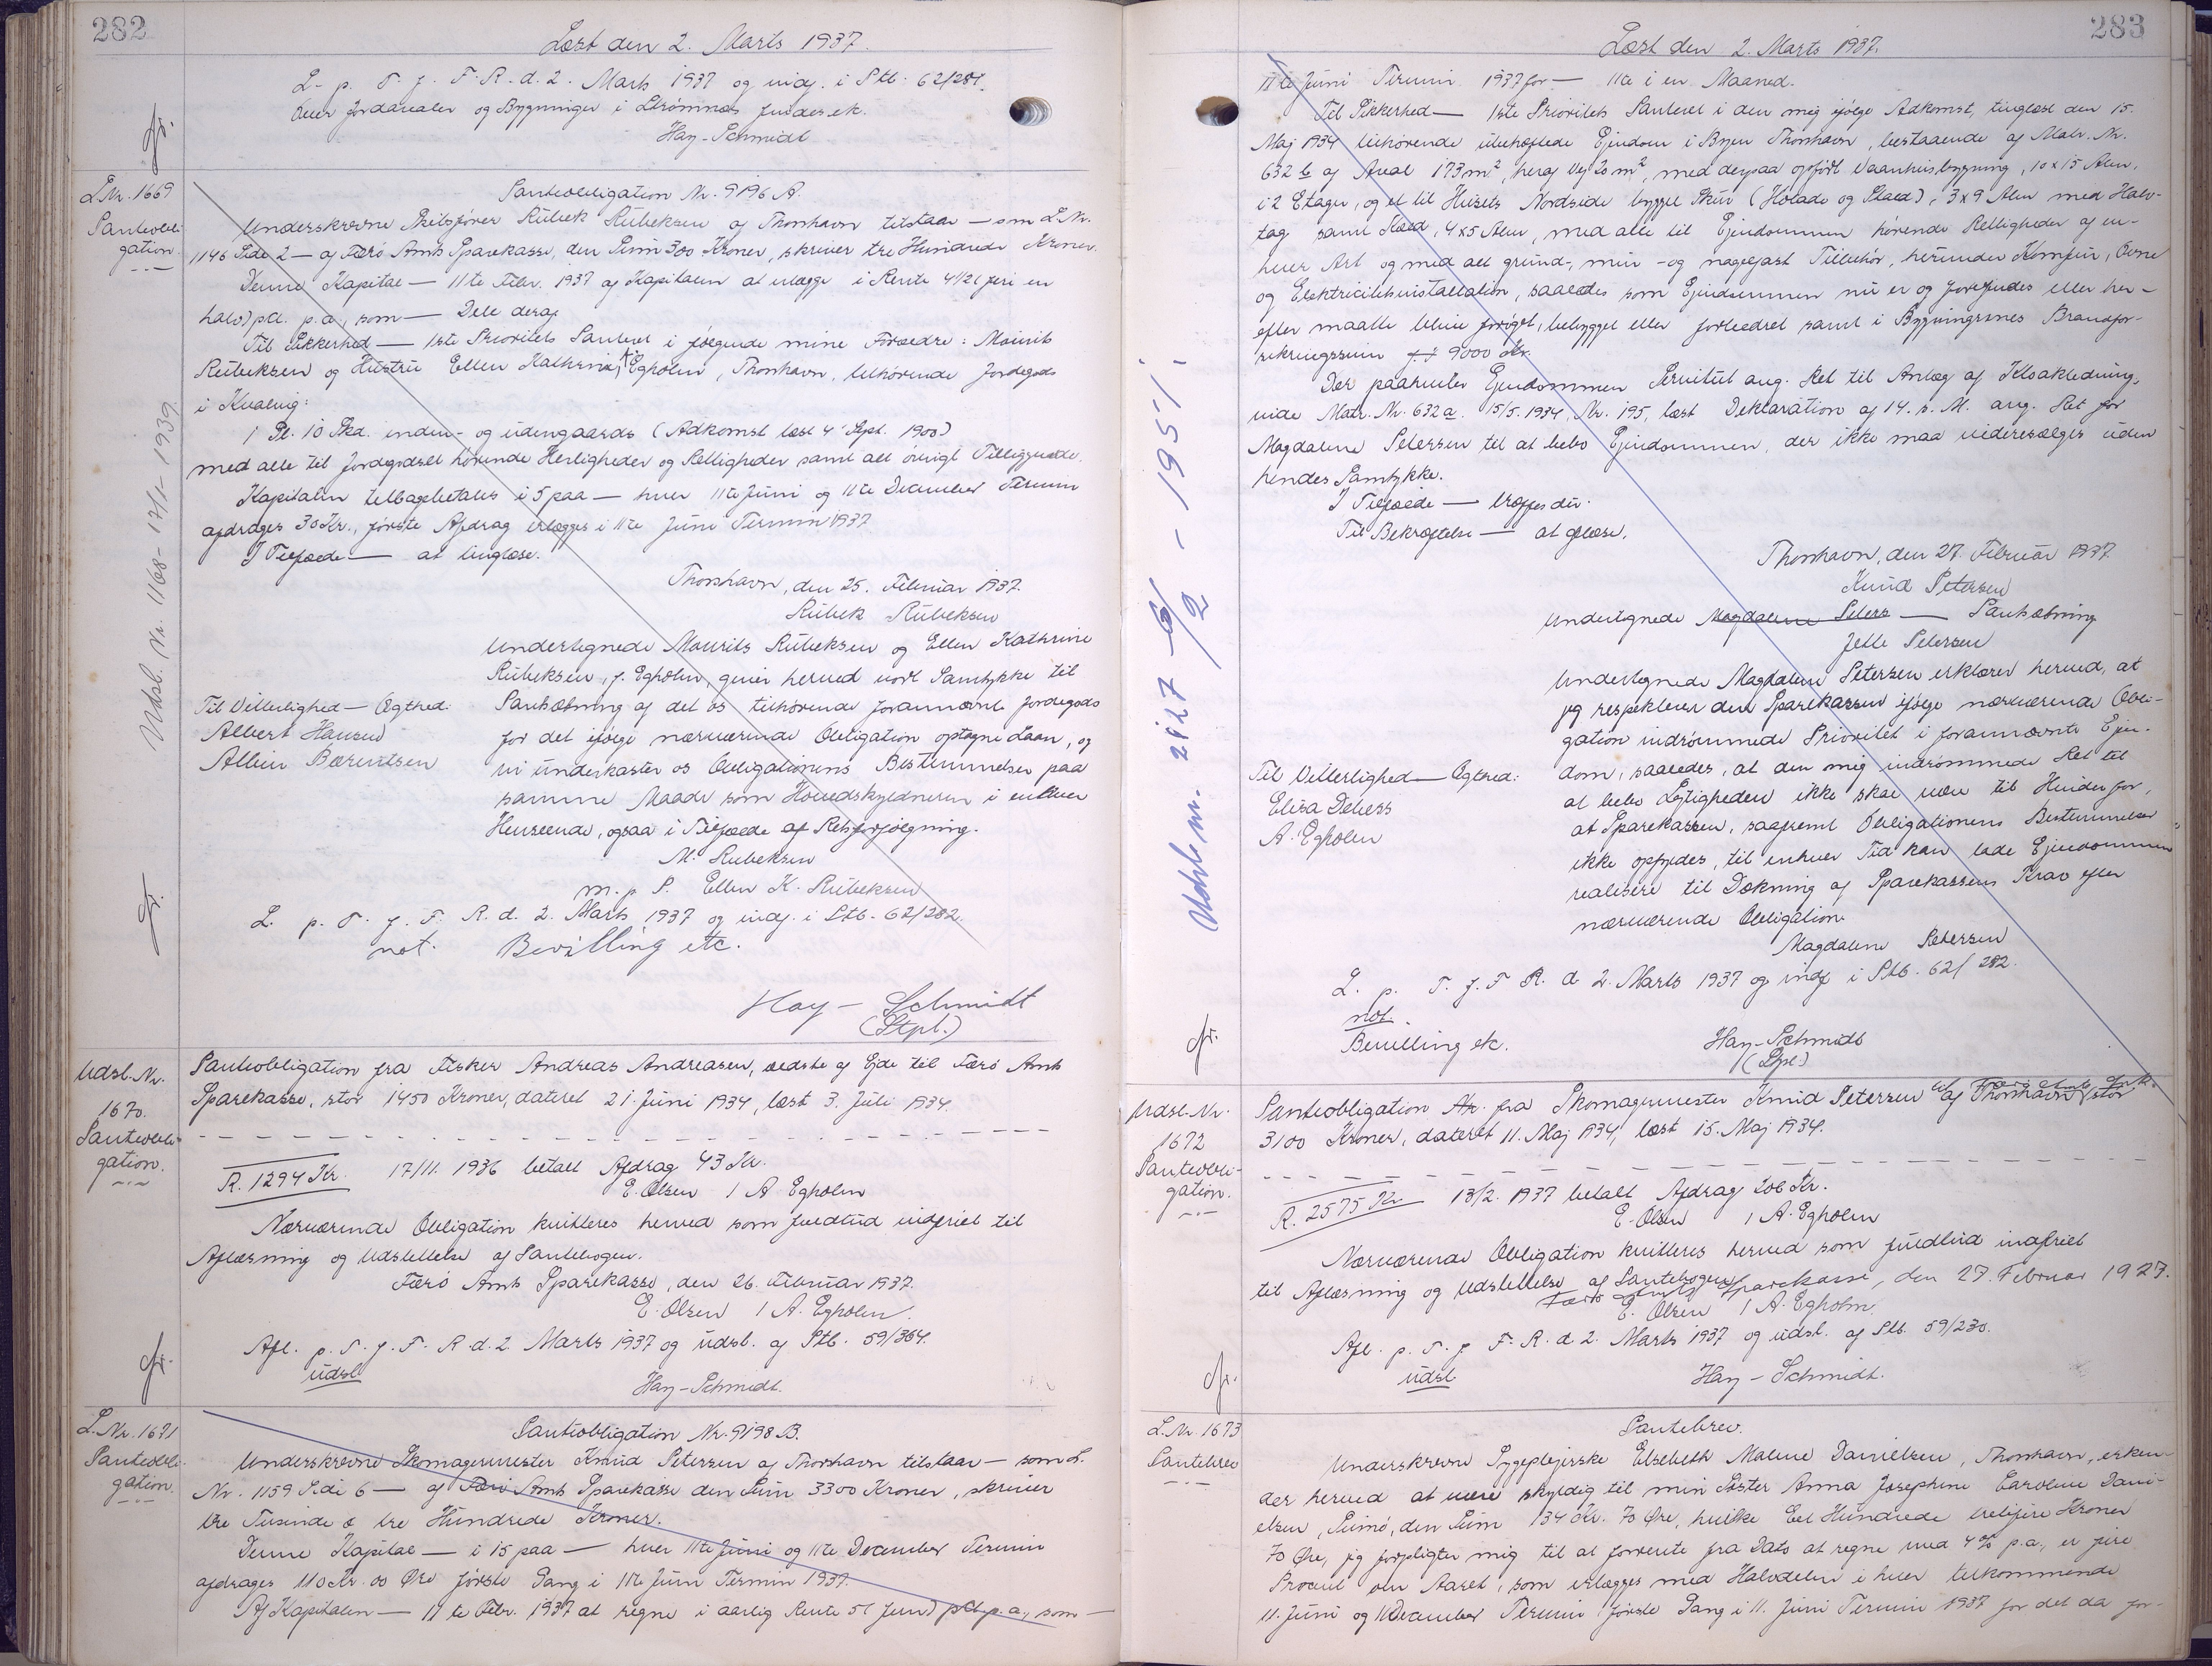 282
Læst den 2. Marts 1937.
L. p. T. f. F. R. d. 2. Marts 1937 og indf. i Ptb. 62/281.
over Jordarealer og Bygninger i Strömnæs findes ek.
Hay-Schmidt
L. Nr. 1669
Panteobli-
gation
Panteobligation Nr. 9196 A.
Underskrevne Skibsfører Rübek Rübeksen af Thorshavn tilstaar — som L. Nr.
1146 Side 2 — af Færø Amts Sparekasse, den Sum 300 Kroner, skriver tre Hundrede Kroner.
Denne Kapital — 11te Febr. 1937 af Kapitalen at erlægge i Rente 4 1/2 ( fire en
halv) pCt. p.a., som — Dele deraf
Til Sikkerhed — 1ste Prioritets Panteret i følgende mine Forældre: Mourits
Rübeksen og Hustru Ellen Kathrine, f. Egholm, Thorshavn, tilhørende Jordegods
i Kvalvig:
1 Gl. 10 Skd. inden- og udengaards (Adkomst læst 4' Sept. 1900)
med alle til Jordegodset hørende Herligheder og Rettigheder samt alt øvrigt Tilliggende.
Kapitalen tilbagebetales i 5 paa — hver 11te Juni og 11te December Termin
afdrages 30 Kr., første Afdrag erlægges i 11te Juni Termin 1937
I Tilfælde — at tinglæse.
Thorshavn, den 25. Februar 1937.
Rübek Rübeksen
Undertegnede Mourits Rübeksen og Ellen Kathrine
Rübeksen, f. Egholm, giver herved vort Samtykke til
Pantsætning af det os tilhørende forannævnte Jordegods
for det ifølge nærværende Obligation optagne Laan, og
vi underkaster os Obligationens Bestemmelser paa
samme Maade som Hovedskyldneren i enhver
Henseende, ogsaa i Tilfælde af Retsforfølgning.
M. Rubeksen
m. p. P. Ellen K. Rübeksen
Til Vitterlighed — Ægthed:
Albert Hansen
Albin Bærentsen
L. p. T. f. F. R. d. 2. Marts 1937 og indf. i Ptb. 62/282.
not. Bevilling etc.
Hay - Schmidt
(Stpl.)
Udsl. Nr. 1168- 17/1- 1939
Udsl. Nr.
1670.
Panteobli-
gation.
Panteobligation fra Fisker Andreas Andreasen, ældste af Ejde til Færø Amts
Sparekasse, stor 1450 Kroner, dateret 21. Juni 1934, læst 3. Juli 1934.
R. 1294 Kr. 17/11. 1936 betalt Afdrag 43 Kr.
E. Olsen / A. Egholm
Nærværende Obligation kvitteres herved som fuldtud indfriet til
Aflæsning og Udslettelse af Pantebogen.
Færø Amts Sparekasse, den 26. Februar 1937.
E. Olsen / A. Egholm
Afl. p. T. f. F. R. d. 2 Marts 1937 og udsl. af Ptb. 59/364.
udsl.
Hay-Schmidt.
L. Nr. 1671
Panteobli-
gation.
Panteobligation Nr. 9198 B.
Underskrevne Skomagermester Knud Petersen af Thorshavn tilstaar — som L.
Nr. 1159 Side 6 — af Færø Amts Sparekasse den Sum 3300 Kroner, skriver
tre Tusinde & tre Hundrede Kroner.
Denne Kapital — i 15 paa — hver 11te Juni og 11te December Termin
afdrages 110 Kr. 00 Øre første Gang i 11te Juni Termin 1937.
Af Kapitalen — 11 te Febr. 1937 at regne i aarlig Rente 5 ( fem) pCt. p.a., som —
283
Læst den 2. Marts 1937.
11te Juni Termin 1937 for — 11te i en Maaned.
Til Sikkerhed — 1ste Prioritets Panteret i den mig ifølge Adkomst, tinglæst den 15.
Maj 1934 tilhørende ubehæftede Ejendom i Byen Thorshavn, bestaaende af Matr. Nr.
632 b af Areal 173 m², heraf Vej 20 m², med derpaa opført Vaanhusbygning, 10 x 15 Alen,
i 2 Etager, og et til Husets Nordside bygget Skur (Hölade og Stald), 3 x 9 Alen med Halv-
tag samt Stald, 4 x 5 Alen, med alle til Ejendommen hørende Rettigheder af en-
hver Art og med alt grund-, mur- og nagelfast Tilbehør, herunder Komfur, Ovne
og Elektricitetsinstallation, saaledes som Ejendommen nu er og forefindes eller her-
efter maatte blive forøget, bebygget eller forbedret samt i Bygningernes Brandfor-
sikringssum f. t. 9000 Kr.
Der paahviler Ejendommen Servitut ang. Ret til Anlæg af Kloakledning,
vide Matr. Nr. 632 a. 15/5. 1934, Nr. 195, læst Deklaration af 14. s. M. ang. Ret for
Magdalene Petersen til at bebo Ejendommen, der ikke maa videresælges uden
hendes Samtykke.
I Tilfælde — træffes der.
Til Bekræftelse — at tinglæse.
Thorshavn, den 27. Februar 1937.
Knud Petersen
Undertegnede Magdalene Peters — Pantsætning
Jette Petersen
Undertegnede Magdalene Petersen erklærer herved, at
jeg respekterer den Sparekassen ifølge nærværende Obli-
gation indrømmede Prioritet i forannævnte Ejen-
dom, saaledes, at den mig indrømmede Ret til
at bebo Lejligheden ikke skal være til Hinder for,
at Sparekassen, saafremt Obligationens Bestemmelser
ikke opfyldes, til enhver Tid kan lade Ejendommen
realisere til Dækning af Sparekassens Krav efter
nærværende Obligation.
Magdalene Petersen
Til Vitterlighed — Ægthed:
Elisa Debess
A. Egholm
L. p. T. f. F. R. d. 2. Marts 1937 og indf i Ptb. 62/282.
not.
Bevilling etc.
Hay-Schmidt
(Stpl.)
Udsl. nr. 2127 - 6/2 - 1951.
Udsl. Nr.
1672
Panteobli-
gation.
Panteobligation Nr. fra Skomagermester Knud Petersen af Thorshavn til Færø Amts Spk. stor
3100 Kroner, dateret 11. Maj 1934, læst 15. Maj 1934.
R. 2575 Kr. 13/2. 1937 betalt Afdrag 206 Kr.
E. Olsen / A. Egholm
Nærværende Obligation kvitteres herved som fuldtud indfriet
til Aflæsning og Udslettelse af Pantebogen.
Færø Amts Sparekasse, den 27. Februar 1927.
E. Olsen / A. Egholm.
Afl. p. T. f. F. R. d. 2. Marts 1937 og udsl. af Ptb. 59/230.
udsl.
Hay-Schmidt.
L. Nr. 1673
Pantebrev
Pantebrev.
Underskrevne Sygeplejerske Elsebeth Malene Danielsen, Thorshavn, erken-
der herved at være skyldig til min Søster Anna Josephine Caroline Dani-
elsen, Sumö, den Sum 134 Kr. 70 Øre, hvilke Eet Hundrede tretifire Kroner
70 Øre, jeg forpligter mig til at forrente fra Dato at regne med 4% p.a., er fire
Procent om Aaret, som erlægges med Halvdelen i hver tilkommende
11. Juni og 11 December Termin første Gang i 11. Juni Termin 1937 for det da for-